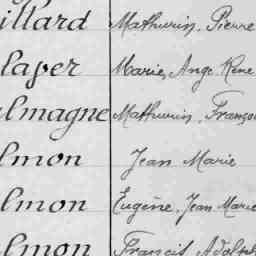 illard Mathurin, Pierre
laver Marie, Ange René
lmagne Mathurin, Franço
lmon Jean Marie
lmon Eugène, Jean Marie
lmon Francis, Adolph